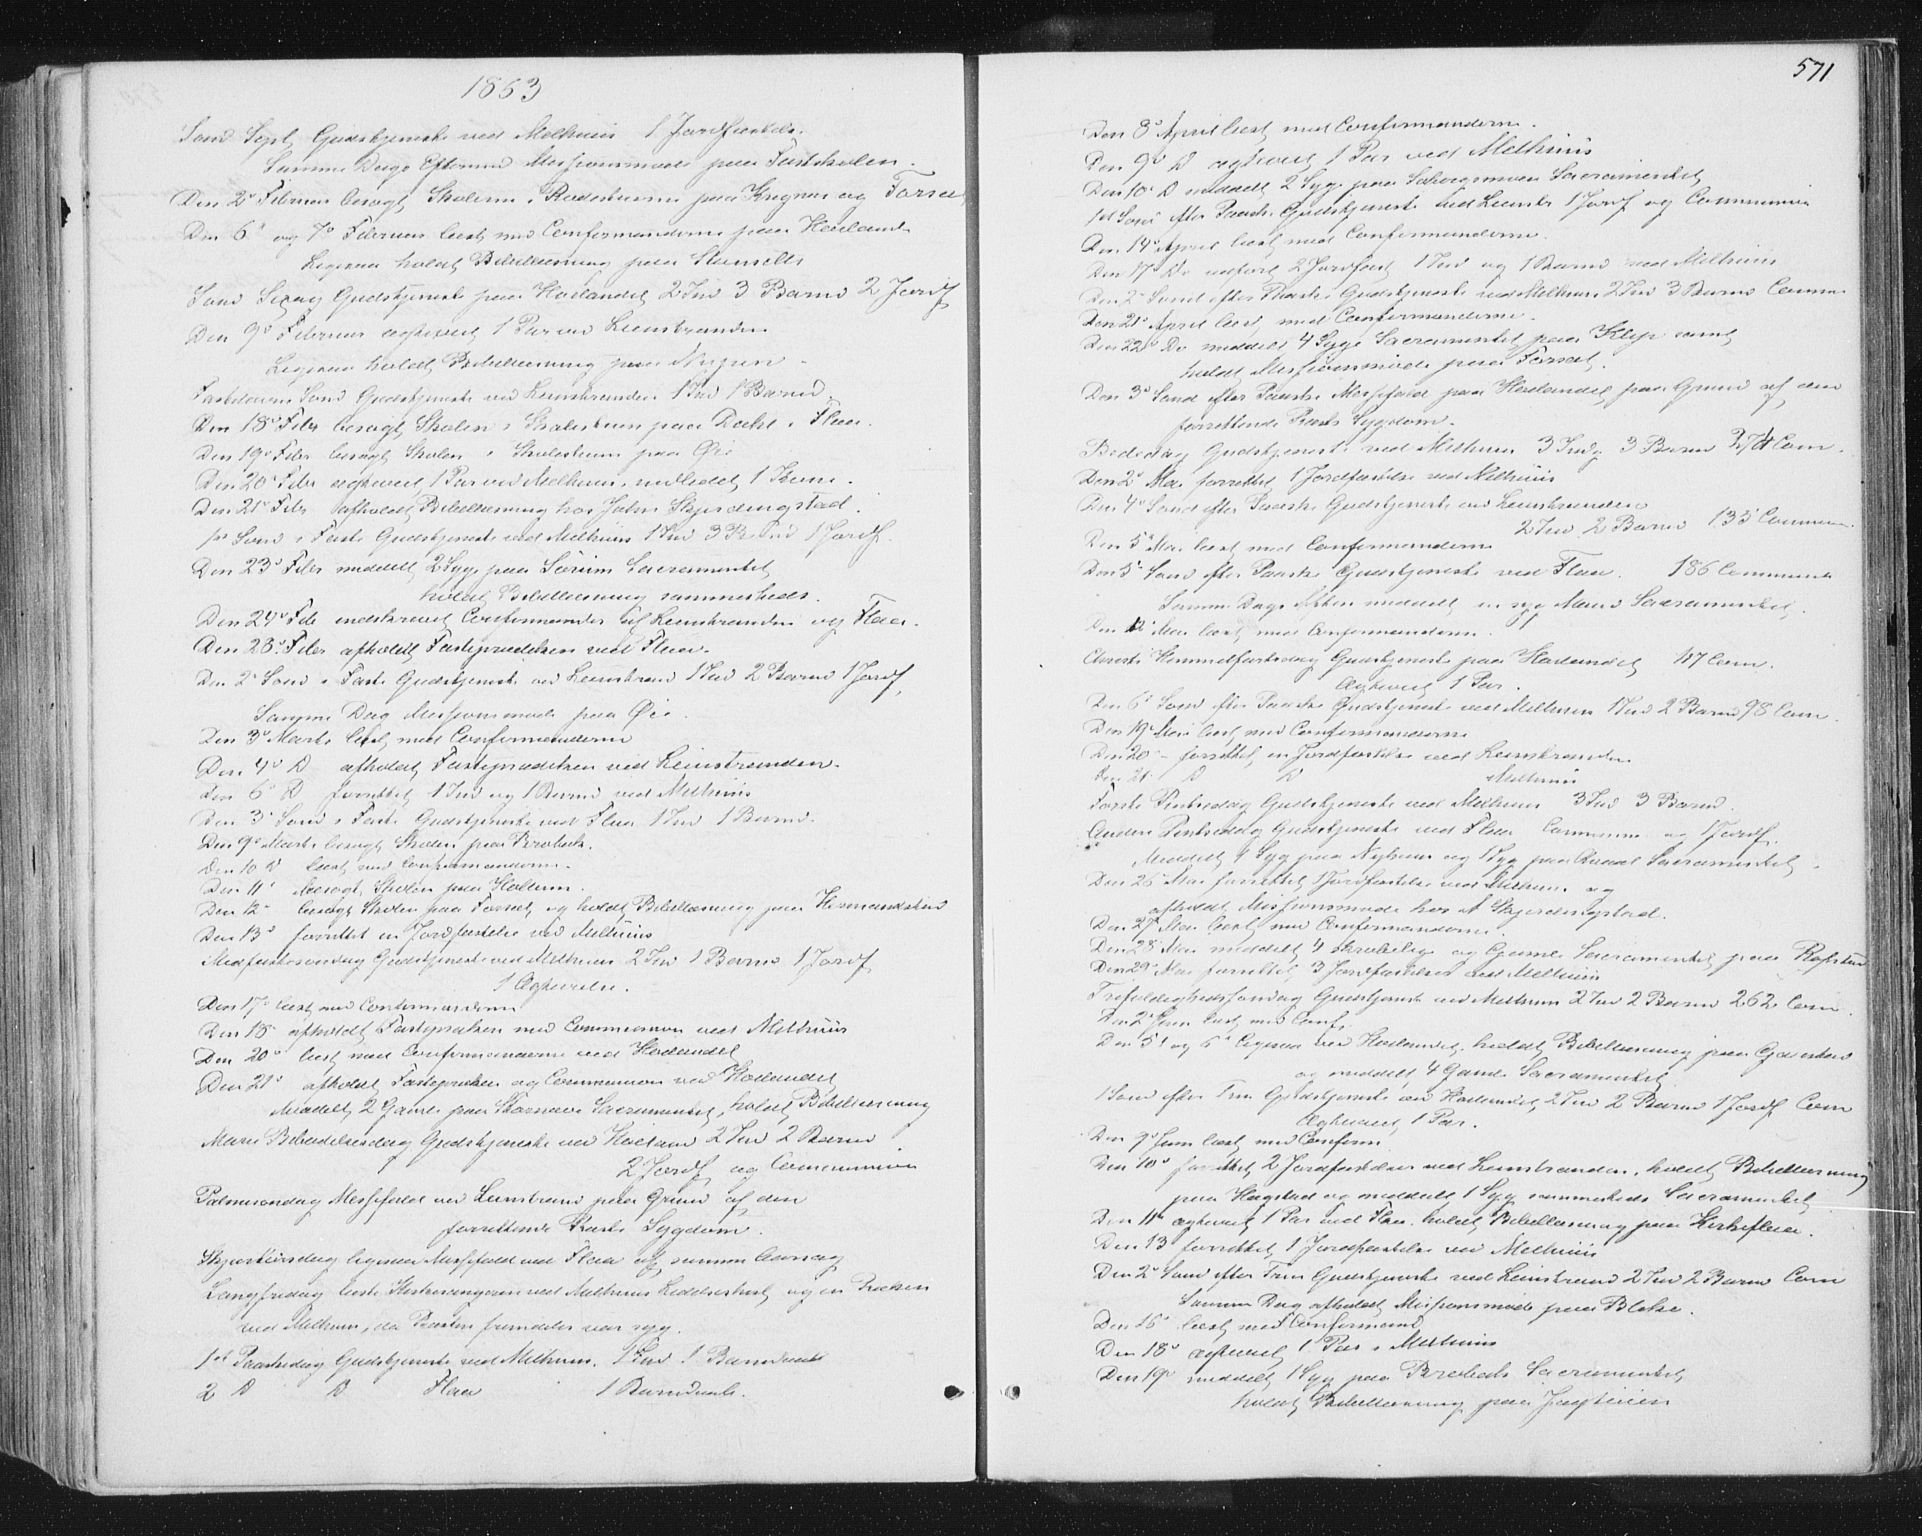 1863
Sønd Sept Gudstjeneste ved Melhuus 1 Jordfæstelse.
Samme Dags Efterm Missionsmøde paa Fastskolen.
Den 2d Februar besøgt Skolerne i Rodestuerne paa Krugnes og Forset
Den 6te og 7de Februar læst med Confirmanderne paa Høilandet
Ligesaa holdt Bibellæsning paa
Sønd Sexag Gudstjeneste paa Høilandet 2 Ind 3 Barnd 2 Jordf
Den 9de Februar ægteviet 1 Par ved Leinstranden
Ligesaa holdt Bibellæsning paa Nypan
Fastelavns Sønd Gudstjeneste ved Leinstranden 1 Ind 1 Barnd
Den 18d Febr besøgt Skolen i Skolestuen paa i Flaa.
Den 19d Febr besøgt Skolen i Skolestuen paa Øie
Den 20d Febr ægteviet 1 Par ved Melhuus, indledet 1 Kone.
Den 21d Febr afholdt Bibellæsning hos John Skjerdingstad.
1ste Sønd i Faste Gudstjeneste ved Melhuus 1 Ind 3 B 1 Jordf.
Den 23d Febr meddelt 2 Syge paa Sørum Sacramentet
holdt Bibellæsning sammesteds.
Den 24d Feb indskrevet Confirmander af Leinstranden og Flaa.
Den 28d Febr afholdt Fasteprædiken ved Flaa.
Den 2d Sønd i Faste Gudstjeneste ved Leinstrand 1 Ind 2 Barnd 1 Jordf,
Samme Dag Missionsmøde paa Øie.
Den 3d Marts læst med Confirmanderne
Den 4d D afholdt Fasteprædiken ved Leinstranden.
Den 6d D forrettet 1 Ind og 1 Barnd ved Melhuus
Den 3d Sønd i Faste Gudstjeneste ved Flaa 1 Ind 1 Barnd.
Den 9d Marts besøgt Skolen paa Brobak.
Den 10 D læst med Confirmanderne.
Den 11d besøgt Skolen paa Hollum.
Den 12d besøgt Skolen paa Forset og holdt Bibellæsning paa
Den 13d forrettet en Jordfæstelse ved Melhuus
Midfastesøndag Gudstjeneste ved Melhuus 2 Ind 1 Barnd 1 Jordf
1 Ægtevielse.
Den 17d læst med Confirmanderne
Den 18d afholdt Fasteprædiken med Communion ved Melhuus
Den 20d læst med Confirmanderne ved Høilandet
Den 21d afholdt Fasteprædiken og Communion ved Høilandet
Meddelt 2 Gamle paa Sacramentet, holdt Bibellæsning
Mariæ Bebudelsesdag Gudstjeneste ved Høiland 2 Ind 2 Barnd
2 Jordf og Communion
Palmesøndag Messefald ved Leinstrand paa Grund af den
forrettende Præsts Sygdom.
Skjærthorsdag ligesaa Messefald ved Flaa af samme Aarsag
Langfredag læste Kirkesangeren ved Melhuus Lidelseshist og en Præken
ved Melhuus, da Præsten fremdeles var syg.
1ste Paaskedag Gudstjeneste ved Melhuus. 1 Ind 1 Barndaab
2 D D Flaa 1 Barndaab.
571
Den 8d April læst med Confirmanderne.
Den 9d D ægteviet 1 Par ved Melhuus
Den 10d D meddelt 2 Syge paa Sacramentet
1ste Sønd efter Paaske Gudstjeneste ved Leinstr 1 Jordf og Communion
Den 14d April læst med Confirmanderne.
Den 17 Do udført 2 Jordfæst 1 Ind og 1 Barnd ved Melhuus
Den 2d Sønd efter Paaske Gudstjeneste ved Melhuus 2 Ind 3 Barnd Comm
Den 21d April læst med Confirmanderne.
Den 22d Do meddelt 4 Syge Sacramentet paa Klep samt
holdt Missionsmøde paa Forset.
Den 3d Sønd efter Paaske Messefald paa Høilandet paa Grund af den
forrettende Præsts Sygdom.
Bededag Gudstjeneste ved Melhuus 3 Indg 3 Barnd Com.
Den 2d Mai forrettet 1 Jordfæstelse ved Melhuus
Den 4d Sønd efter Paaske Gudstjeneste ved Leinstranden
2 Ind 2 Barnd 135 Commun.
Den 5d Mai læst med Confirmanderne
Den 5d Sønd efter Paaske Gudstjeneste ved Flaa. 186 Communic
Samme Dags Aften meddelt en syg Mand Sacramentet.
Den 12 Mai læst med Confirmanderne.
Christi Himmelfartsdag Gudstjeneste paa Høilandet 117 Com.
Ægteviet 1 Par.
Den 6d Sønd efter Paaske Gudstjeneste ved Melhuus 1 Ind 2 Barnd 98 Com.
Den 19d Mai læst med Confirmanderne
Den 20 - forrettet en Jordfæstelse ved Leinstranden
Den 21 D D Melhuus
Første Pintsedag Gudstjeneste ved Melhuus 3 Ind 3 Barnd.
Anden Pintsedag Gudstjeneste ved Flaa Commun og 1 Jordf.
Meddelt 1 Syg paa Nyhuus og 1 Syg paa Sacramentet.
Den 26 Mai forrettet 1 Jordfæstelse ved Melhuus og
afholdt Missionsmøde hos A Skjerdingstad.
Den 27 Mai læst med Confirmanderne.
Den 28 Mai meddelt 4 skrøbelige og Gamle Sacramentet paa
Den 29d Mai forrettet 3 Jordfæstelser ved Melhuus
Trefoldighedssøndag Gudstjeneste ved Melhuus 2 Ind 2 Barnd 262 Com.
Den 2d Juni læst med Conf.
Den 5d og 6d ligesaa ved Høilandet, holdt Bibellæsning paa
og meddelt 4 Gamle Sacramentet
1 Sønd efter Trin Gudstjeneste ved Høilandet, 2 Ind 2 Barnd 1 Jordf Com
Ægteviet 1 Par.
Den 9d Juni læst med Confirm
Den 10d forrettet 2 Jordfæstelser ved Leinstranden, holdt Bibellæsning
paa Hagstad og meddelt 1 Syg sammesteds Sacramentet
Den 11te ægteviet 1 Par ved Flaa. holdt Bibellæsning paa Kirkeflaa.
Den 13 forrettet 1 Jordfæstelse ved Melhuus
Den 2d Sønd efter Trin Gudstjeneste ved Leinstrand 2 Ind 2 Barnd Com
Samme Dag afholdt Missionsmøde paa
Den 16d læst med Confirmand
Den 18d ægteviet 1 Par i Melhuus
Den 19d meddelt 1 Syg paa Brobak Sacramentet
holdt Bibellæsning paa